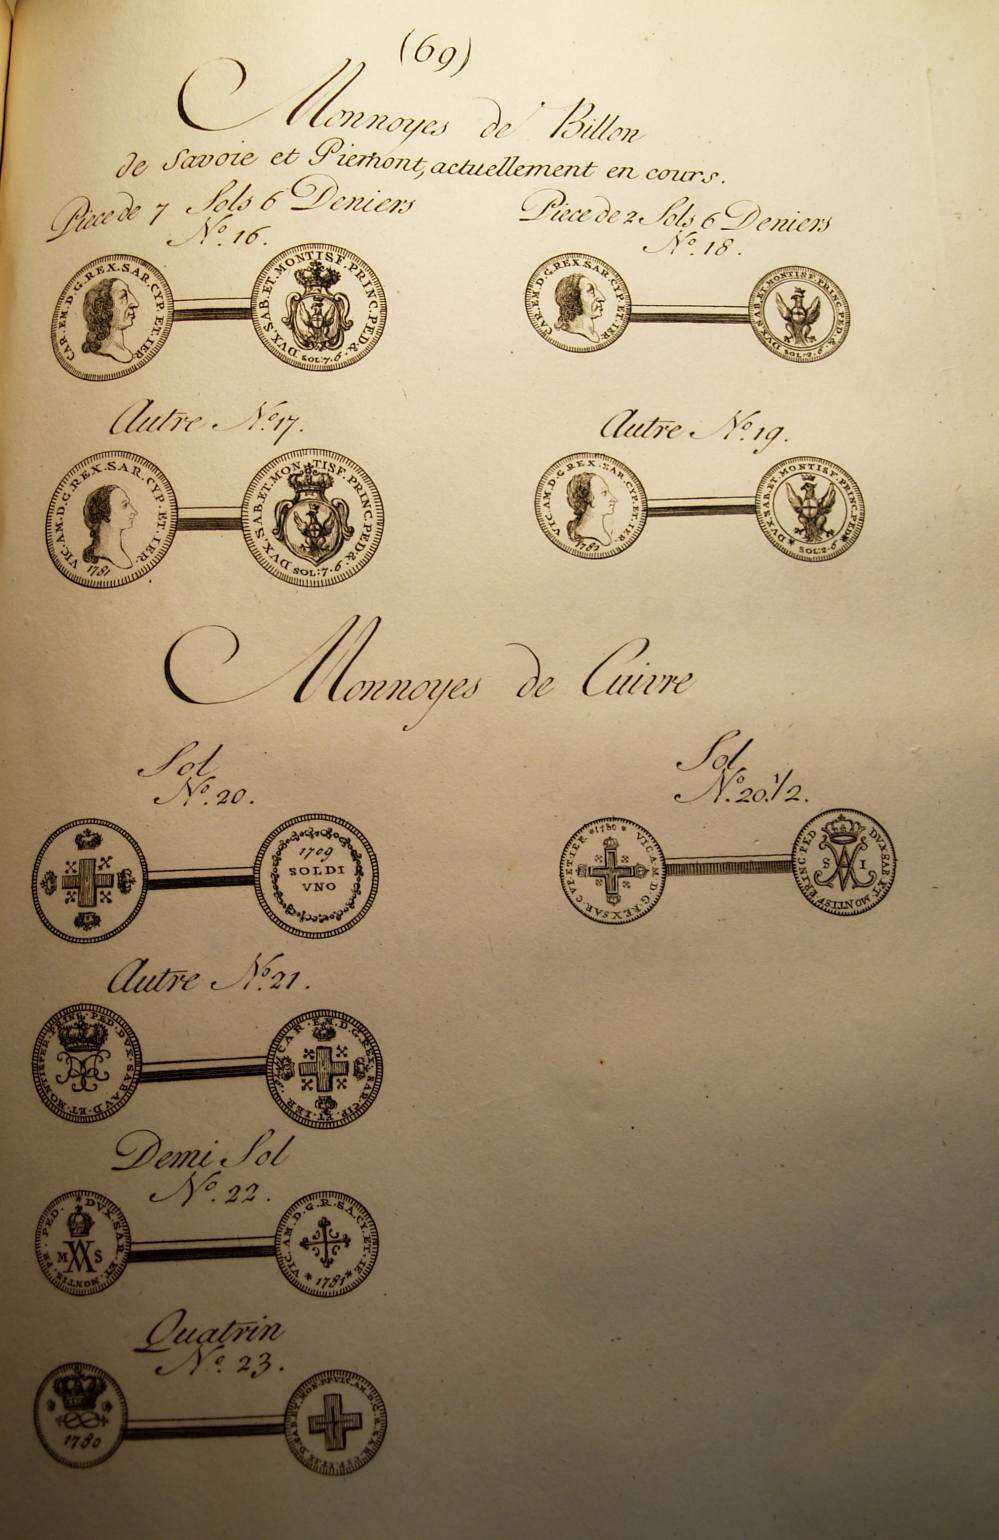 (69)
Monnoyes de Billon
de Savoie et Piemont, actuellement en cours.
Piece de 7 Sols 6 Deniers
N.º 16.
CAR.EM.D.G.REX.SAR.CYP.ET.IER
DVX.SAB.ET.MONTISF.PRINC.PED.&
SOL:7.6.
Piece de 2 Sols 6 Deniers
N.º 18.
CAR.EM.D.G.REX.SAR.CYP.ET.IER
DVX.SAB.ET.MONTISF.PRINC.PED.&
SOL:2.6.
Autre N.º 17.
VIC.AM.D.G.REX.SAR.CYP.ET.IER.
1781
DVX.SAB.ET.MONTISF.PRINC.PED&.
SOL:7.6.
Autre N.º 19.
VIC.AM.D.G.REX.SAR.CYP.ET.IER.
DVX.SAB.ET.MONTISF.PRINC.PED&
SOL:2.6
Monnoyes de Cuivre
Sol
N.º 20.
1709
SOLDI
VNO
Sol
N.º 20.1/2.
*1780* VIC.AM.D.G.REX.SAR.CYP.ET.IER
DVX.SAB.ET.MONTISF.PRINC.PED
S I
Autre N.º 21.
PED.DVX.SABAVD.ET.MONTISFER.PRINC.
CAR.EM.D.G.REX.SAR.CIP.ET.IER
Demi Sol
N.º 22.
DVX.SAB.ET.MONTIS.PR.PED.
M S
VIC.AM.D.G.R.SA.CY.ET.IE
*1781*
Quatrin
N.º 23.
1780